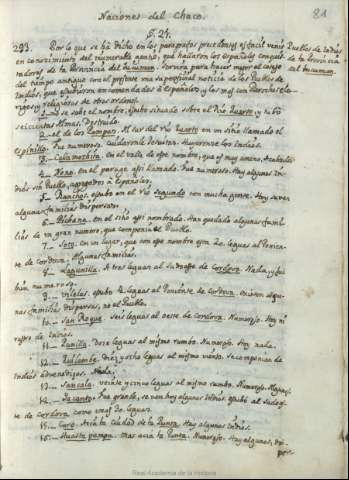 Naciones del Chaco.
81
§. 21.
293. Por lo que se há dicho en los parrafos precedentes es facil venir
en conocimiento del innumerable gentio, que hallaron los Españoles conquis-
tadores de la Provincia del Tucuman. Servirá para hacer mejor el cotejo
del tiempo antiguo con el presente una superficial noticia de los Pueblos de
Indios, que estuvieron encomendados á Españoles, y los mas con Parrochos Cle-
rigos y religiosos de otras ordenes.
Pueblos de Indios
de la Provincia
del Tucuman.
1.- no se sabe el nombre, estubo situado sobre el Rio Quarto, y tubo
seiscientas Almas. Destruido.
2.- el de los Pampas. Al sur del Rio Quarto en un sitio llamado el
Espinillo. Fue numeroso. cuidaronle Jesuitas. Huyeronse los Indios.
3.- Calamochita. en el valle de este nombre, que es muy ameno.
4.- en el parage assi llamado. Fue numeroso. Hay algunos In-
dios sin Pueblo, agregados á Españoles.
5.- estubo en el Rio segundo con mucha gente. Hoy se ven
algunas familias dispersas.
6.- Pichana. en el sitio assi nombrado. Han quedado algunas fami-
lias de un gran numero, que componia el Pueblo.
7.- Soto. en un lugar, que con este nombre esta 20. leguas al Ponien-
te de Cordova. Algunas familias.
8.- Lagunilla. A tres leguas al sudoeste de Cordova. Nada, y fué
bien numeroso.
9.- estubo leguas al Poniente de Cordova. existen algu-
nas familias dispersas, no el Pueblo.
10.- San Roque. seis leguas al oeste de Cordova. Numeroso. Hoy ni
rastro de Indios.
11.- Punilla. Doze leguas al mismo rumbo. Numeroso. Hoy nada.
12.- Diez y ocho leguas al mismo viento. se componia de
Indios advenedizos. Nada.
13.- Sancala. veinte y cinco leguas al mismo rumbo. Numeroso.
14.- Jacanto. Fue grande, se ven hoy algunos Indios. estubo al Sudoes-
te de Cordova como unas 20. leguas.
15.- Acia la ciudad de la Punta. Hay algunos Indios.
16.- pampa. Mas acia la Punta. Numeroso. Hay algunos, dis-
per-
Real Academia de la Historia